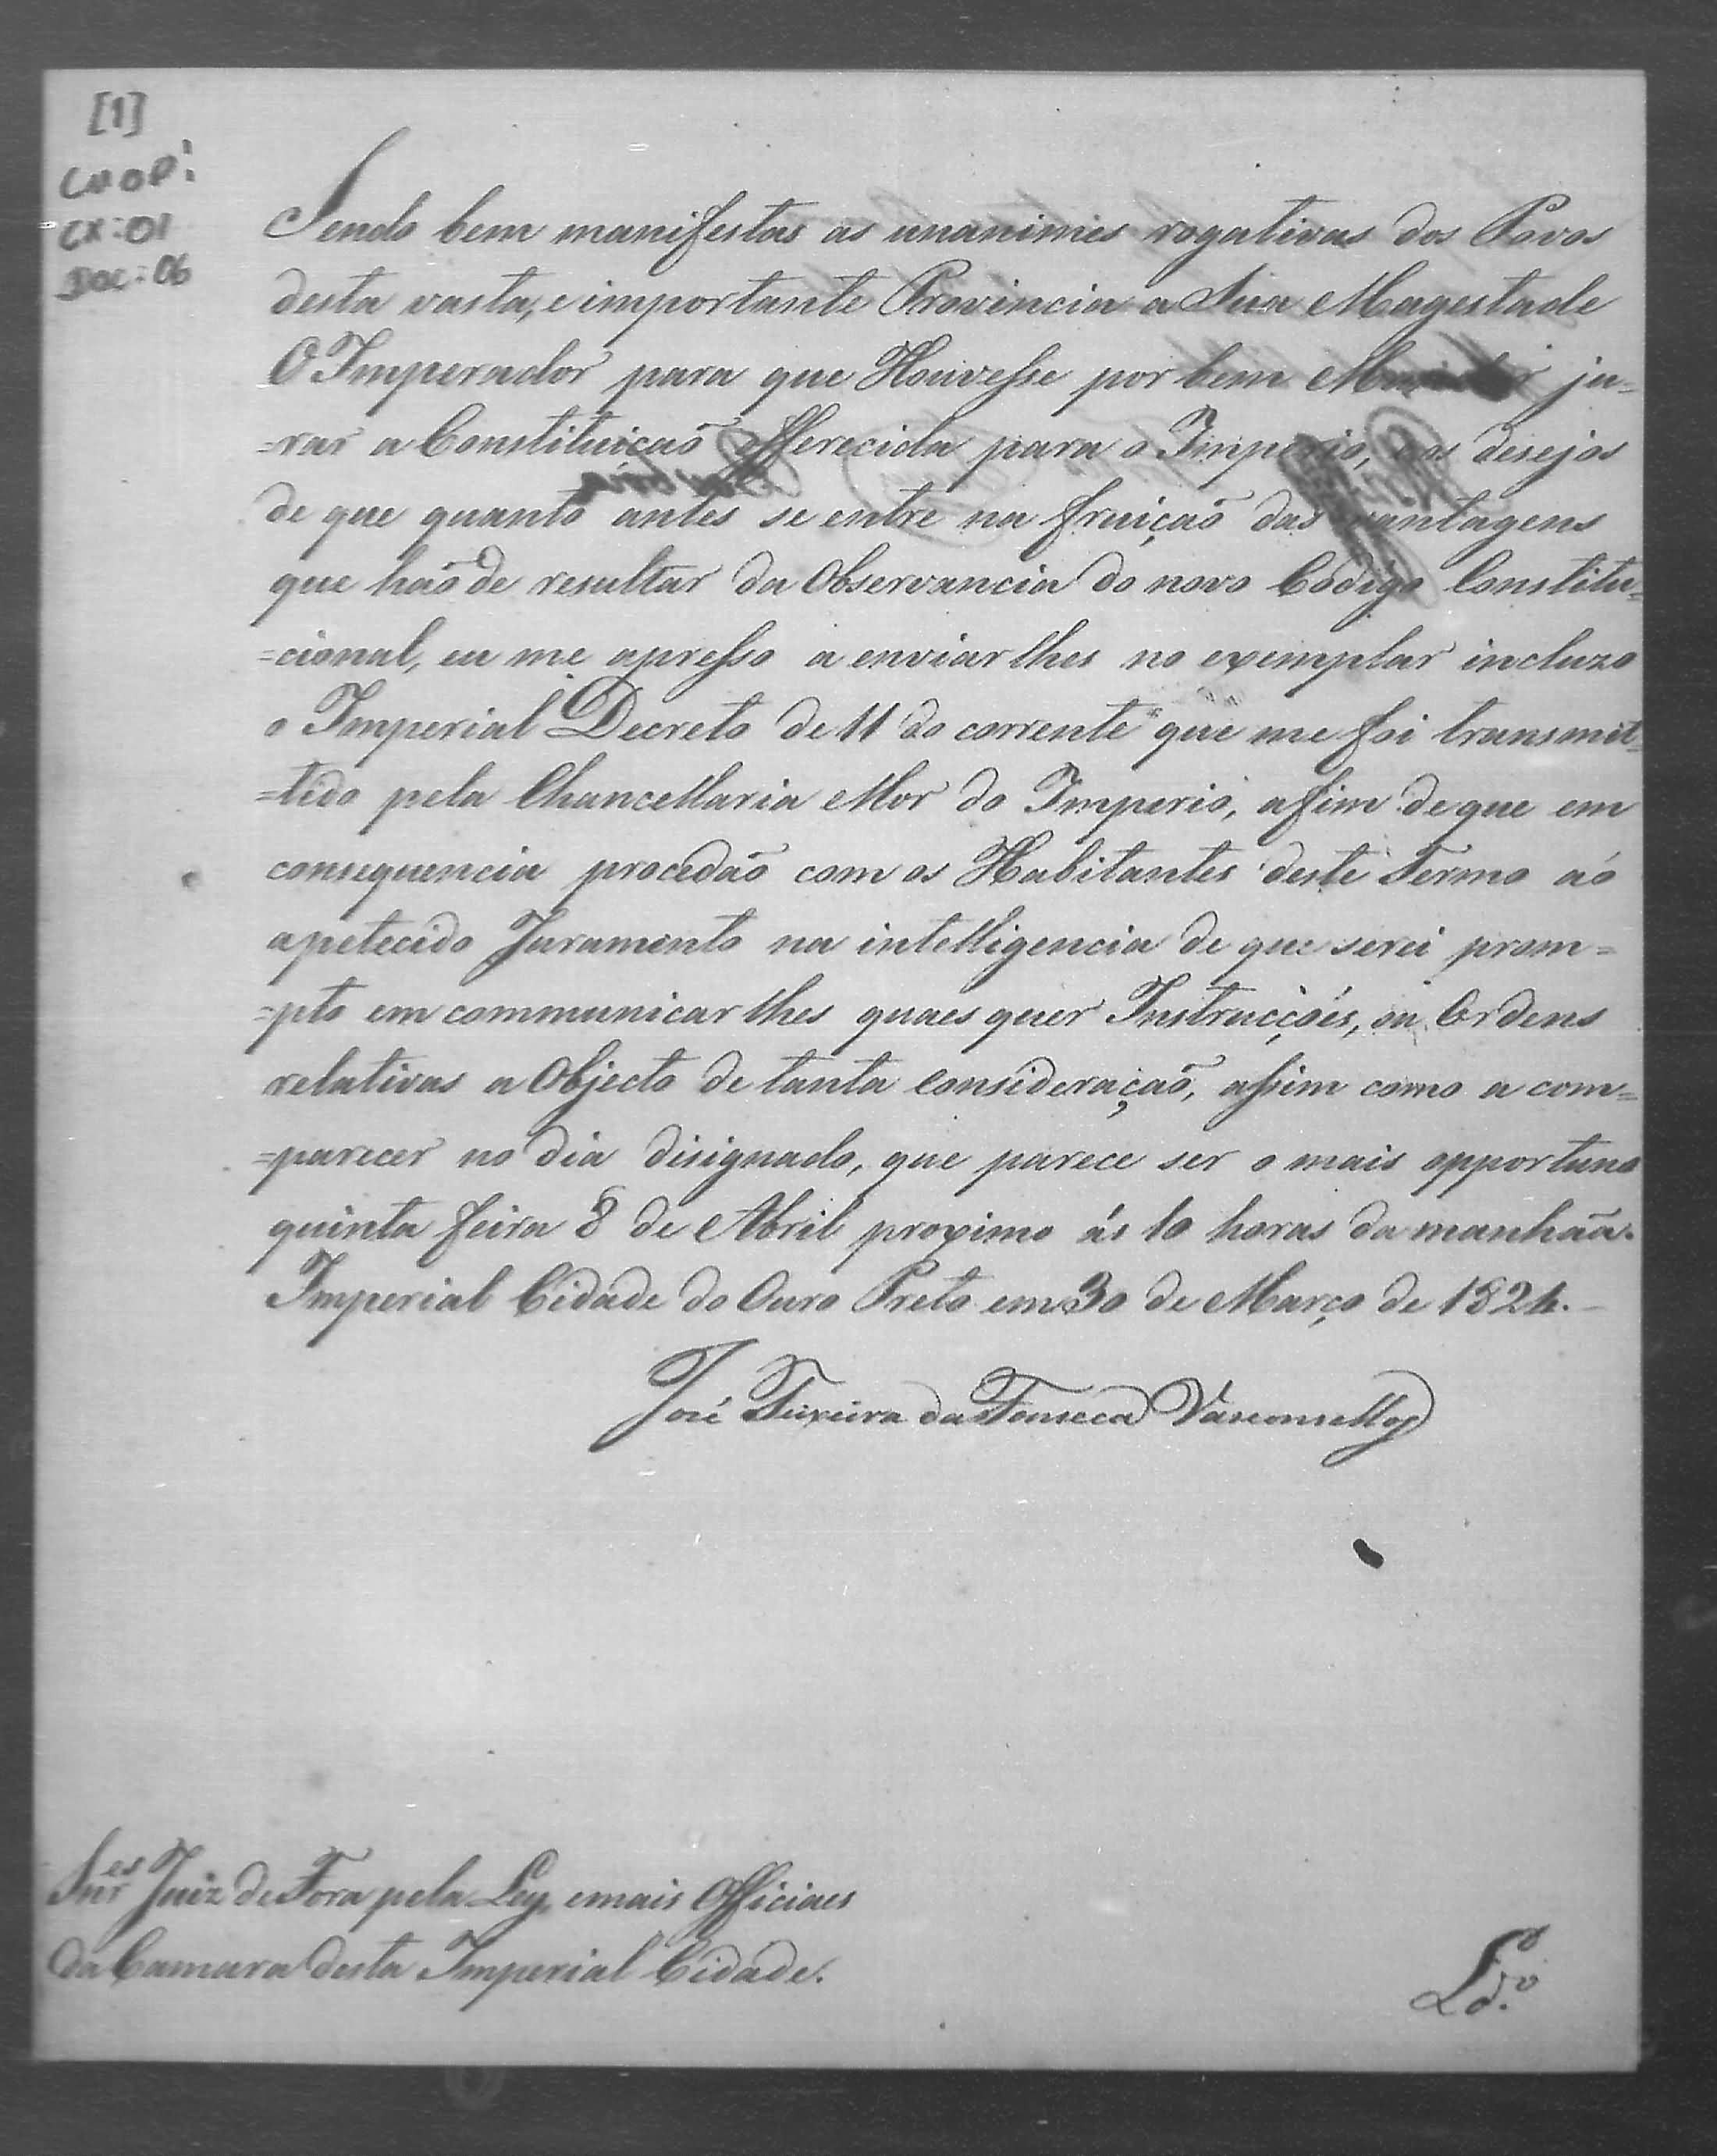 [1]
CMOP:
CX: 01
Doc: 06
Sendo bem manifestas as unanimes rogativas dos Povos
desta vasta, e importante Provincia a Sua Magestade
O Imperador para que Houvesse por bem Mandar ju=
=rar a Constituição offerecida para o Imperio, e os desejos
de que quanto antes se entre na fruição das vantagens
que hão de resultar da Observancia do novo Codigo Constitu=
=cional, eu me apresso a enviar lhes no exemplar incluzo
o Imperial Decreto de 11 do corrente que me foi transmit=
=tido pela Chancellaria Mor do Imperio, a fim de que em
consequencia procedão com os Habitantes deste Termo áo
apetecido Juramento na intelligencia de que serei prom=
=pto em communicar lhes quaes quer Instrucções, ou Ordens
relativas a Objecto de tanta consideração, assim como a com=
=parecer no dia disignado, que parece ser o mais opportuno
quinta feira 8 de Abril proximo ás 10 horas da manhãa.
Imperial Cidade do Ouro Preto em 30 de Março de 1824.
José Teixeira da Fonseca Vasconcellos
Snr.es Juiz de Fora pela Ley, e mais Officiaes
da Camara desta Imperial Cidade.